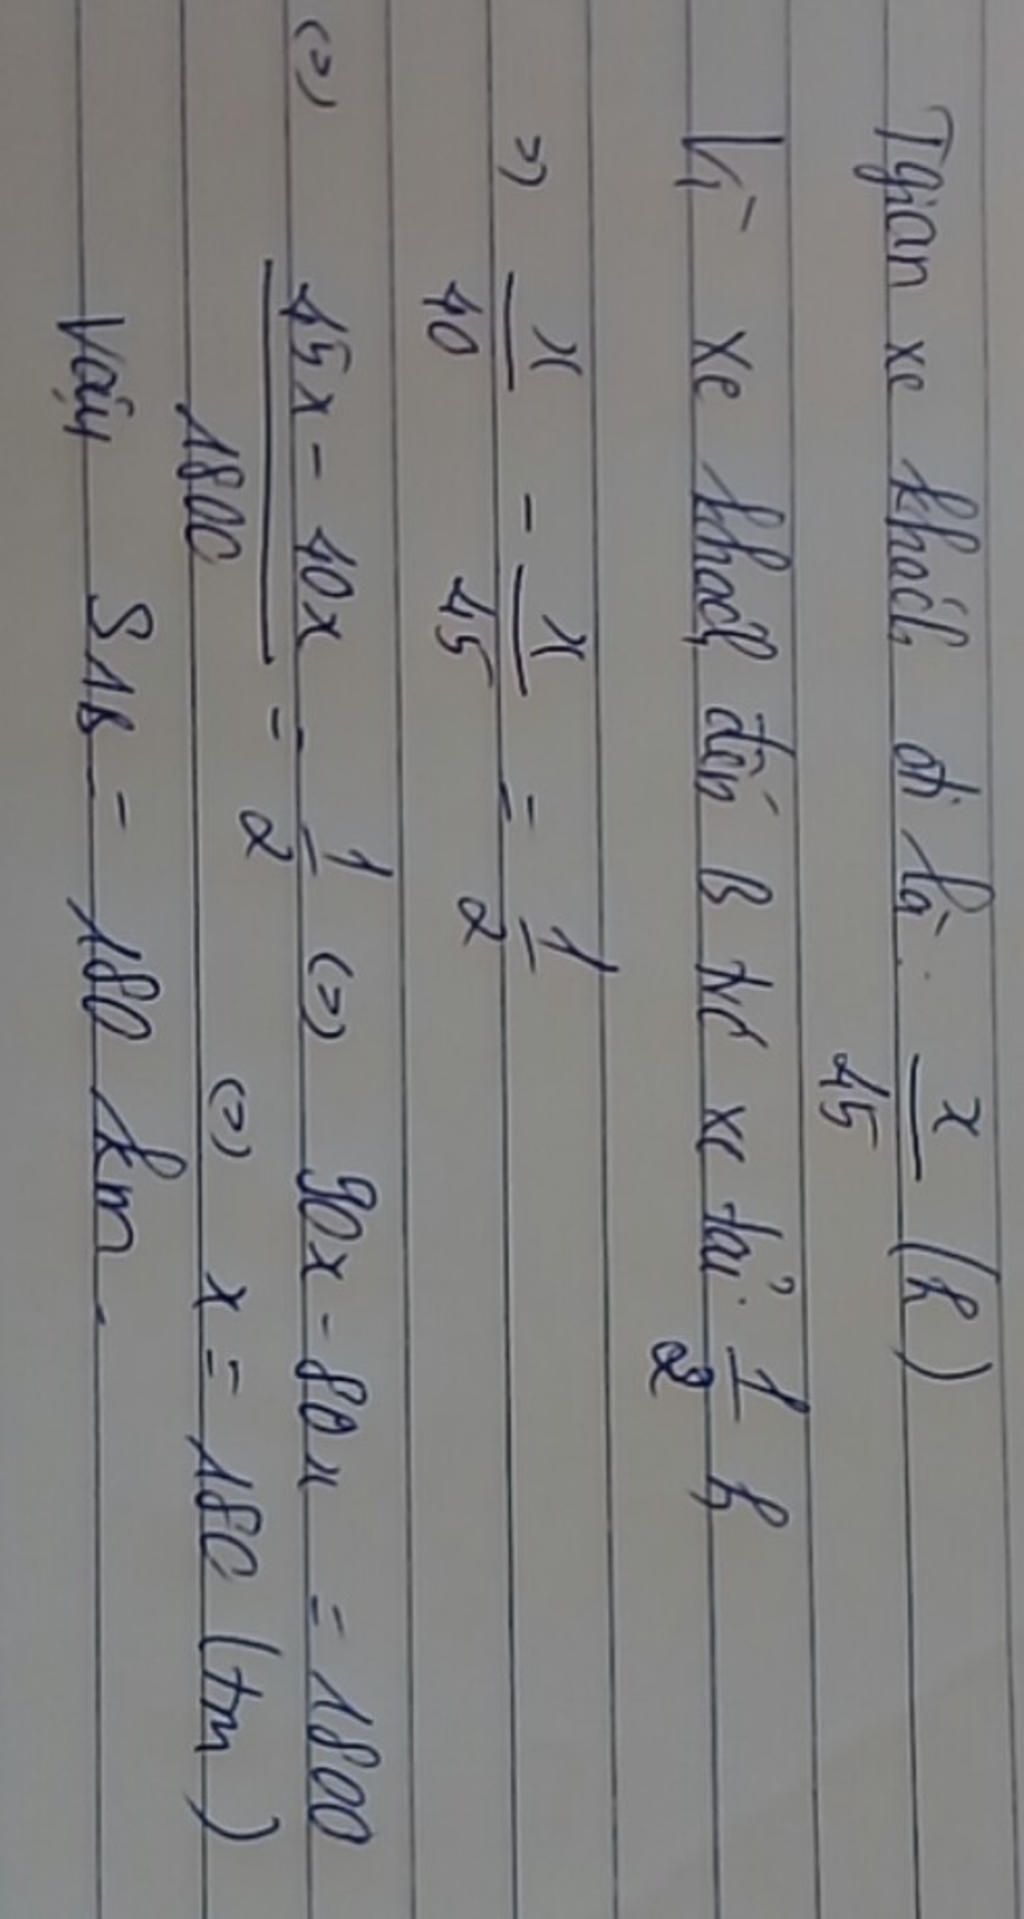 Tgian xe khách đi là: x/45 (h)
Vì xe khách đến B trc xe tải 1/2 h
=> x/40 - x/45 = 1/2
(=) (45x - 40x)/1800 = 1/2 (=) 90x - 80x = 1800
(=) x = 180 (tm)
Vậy SAB = 180 km.